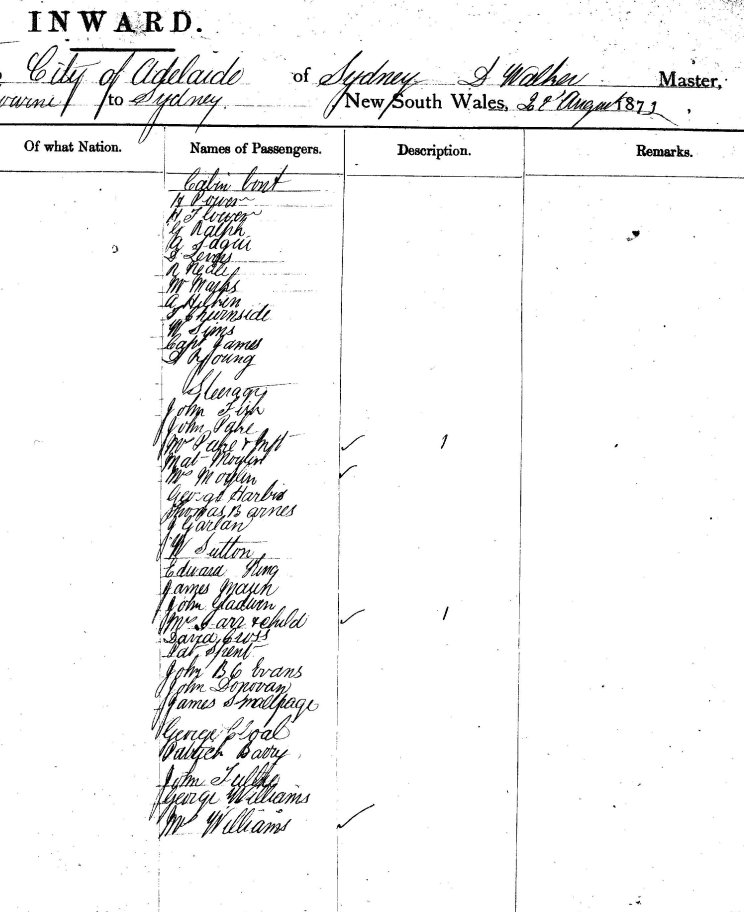 INWARD.
City of Adelaide of Sydney D Walker Master,
to Sydney New South Wales, August 1871
Of what Nation. Names of Passengers. Description. Remarks.
Cabin Cont
H Power
H Flower
G Ralph
A
S Levy
R
Mr Marks
A
T Chirnside
W Sims
Capt James
Young
Steerage
John Fish
John Pake
Mrs Pake & Inft 1
Mat Moylin
Mrs Moylin
George Harbis
Thomas Barnes
J Garlan
W Sutton
Edward King
James
John Gladwin
Mrs Carr & child 1
David Cross
Pat Spent
John B C Evans
John Donovan
James Smallpage
George Cloal
Patrick Barry
John
George Williams
Mrs Williams